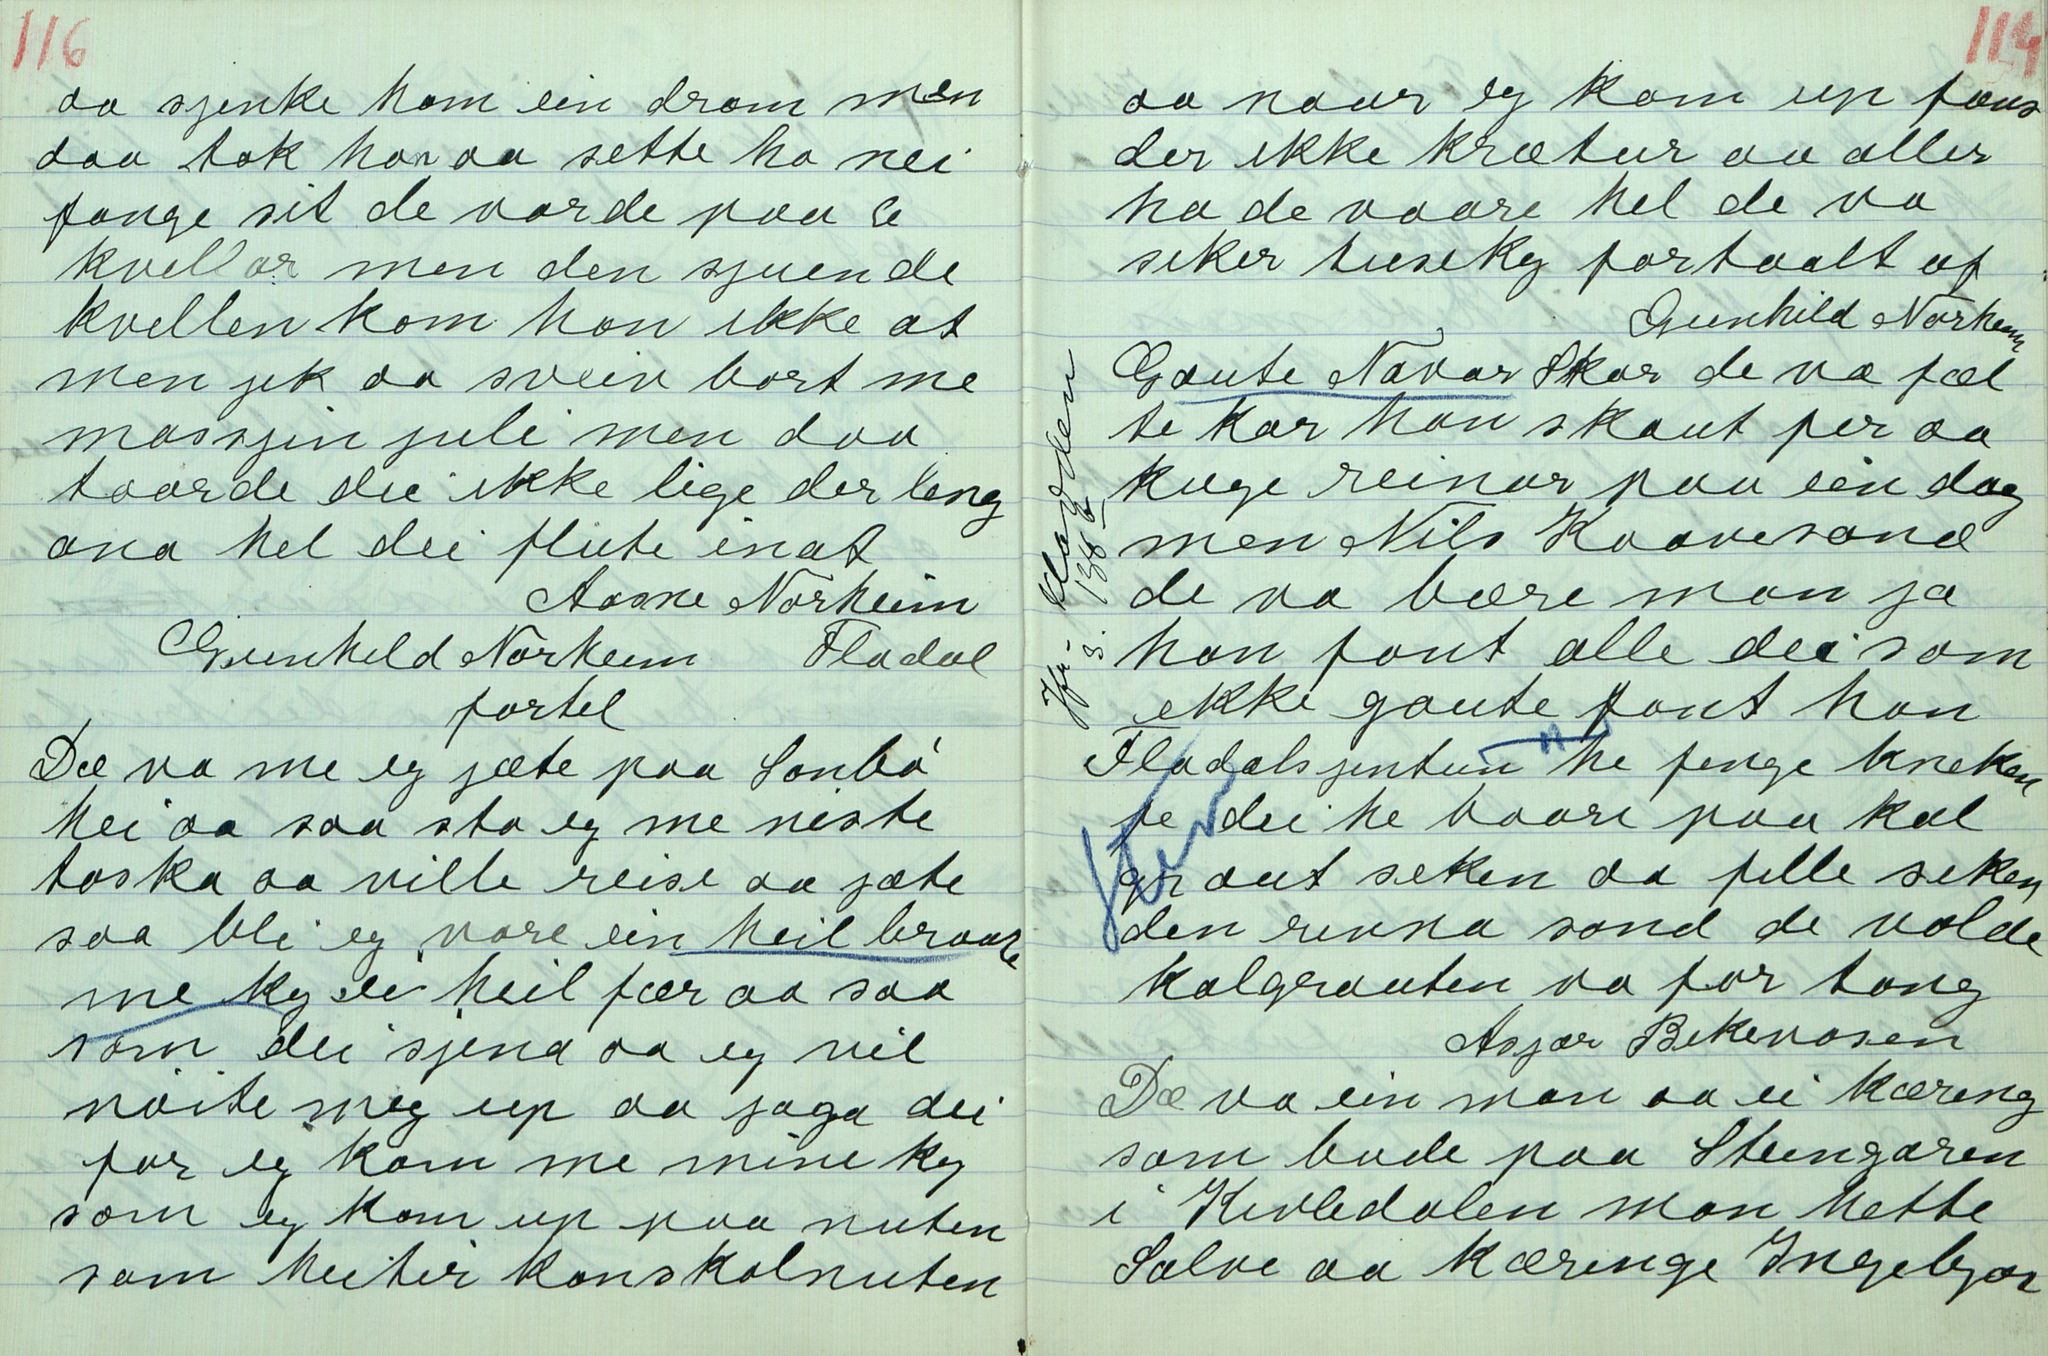 116
aa sjenke ham ein dram men
daa tok han aa sette ha nei
fange sit de varde paa se
kvellar men den sjuende
kvellen kom han ikke at
men jik aa svein bort me
massjin juli men daa
taarde dei ikke lige der leng
ana hel dei flute inat
Aasne Norheim
Gunhild Norheim Fladal
fortel
Dæ va me eg jæte paa Sonbö
hei aa saa sto eg me niste
taska aa ville reise aa jæte
saa blei eg vare ein heil braate
me ky ei heil fær aa saa
som dei sjena aa eg vil
nöite meg up aa jaga dei
for eg kom me mine ky
som eg kom up paa nuten
som heiter kanskalnuten
114
aa naar eg kom up fans
der ikke krætur aa aller
ha de vaare hel de va
seker tuseky fortaalt af
Gunhild Norheim
Gaute Navar Skar de va fæl
te kar han skaut fir aa
kuge reinar paa ein dag
men Nils Kaavesand
de va bære man ja
han fant alle dei som
ikke gaute fant han
Fladalsjentun he fenge kneken
fe dei he baare paa kal
graut seken aa fille seken
den renna sand de valde
kalgrauten va for tang
Asjær Bekevasen
Dæ va ein man aa ei kæring
som bude paa Steingaren
i Kivledalen man hette
Salve aa kæringe Ingebjør